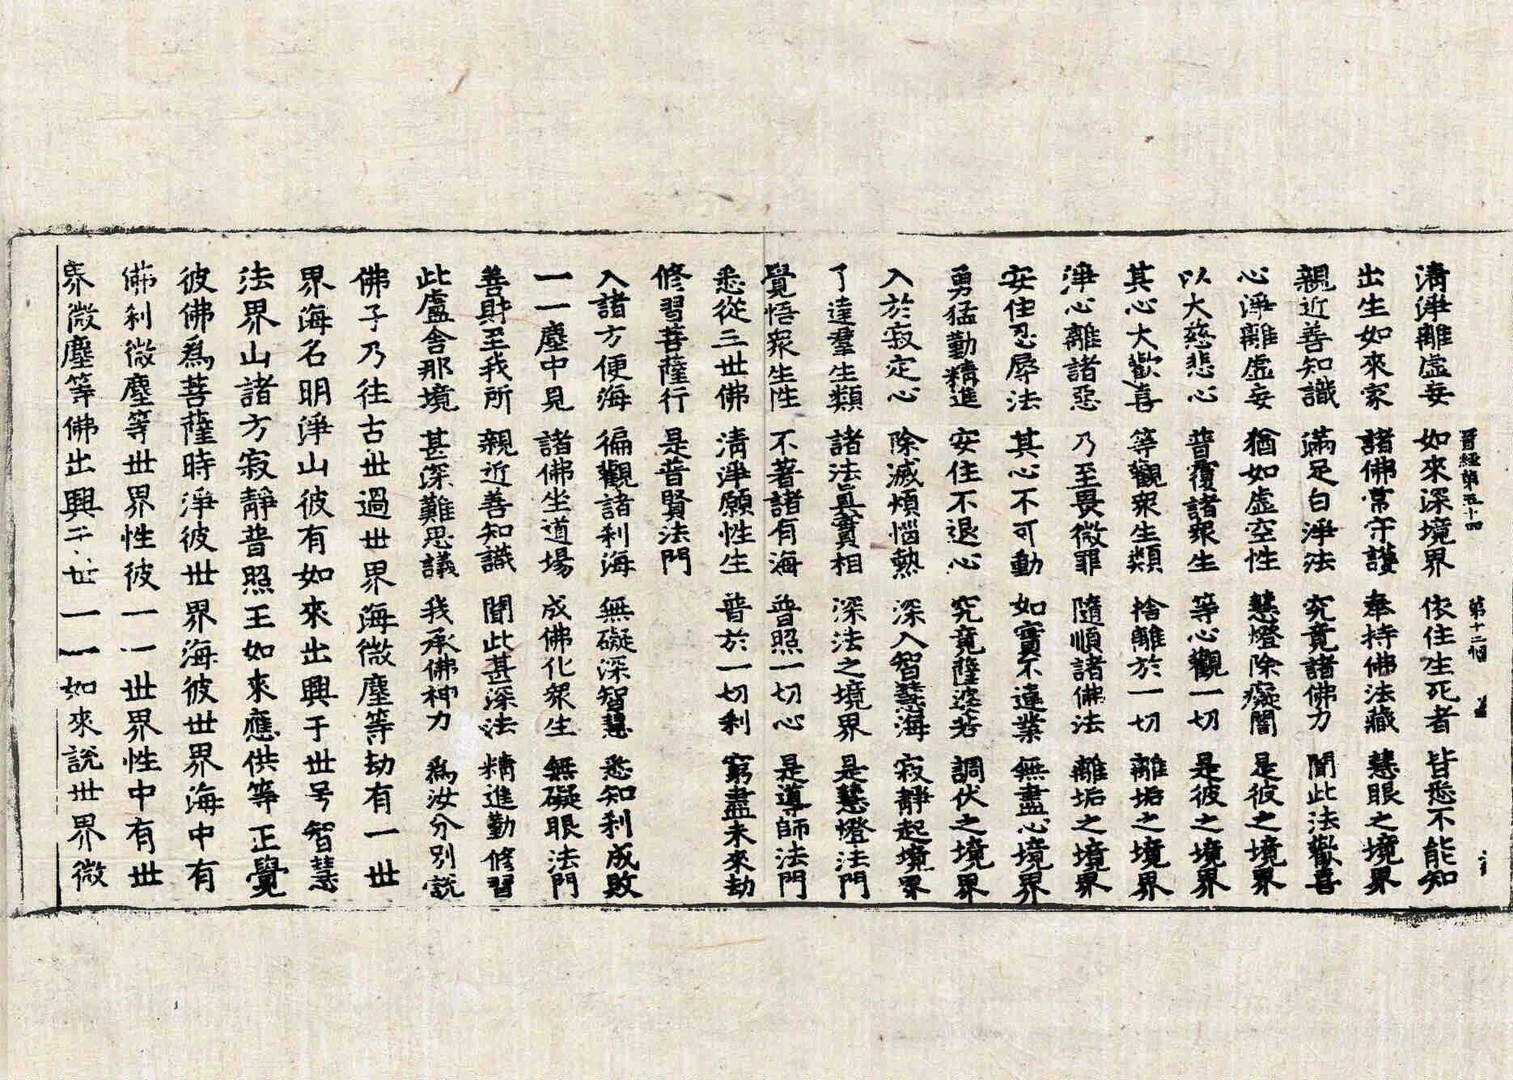 晋經第五十四　第十二 
清淨離虛妄　如來深境界　依住生死者　皆悉不能知
出生如來家　諸佛常守護　奉持佛法藏　慧眼之境界
親近善知識　滿足白淨法　究竟諸佛力　聞此法歡喜
心淨離虛妄　猶如虛空性　慧燈除癡闇　是彼之境界
以大慈悲心　普覆諸衆生　等心觀一切　是彼之境界
其心大歡喜　等觀衆生類　捨離於一切　離垢之境界
淨心離諸惡　乃至畏微罪　隨順諸佛法　離垢之境界
安住忍辱法　其心不可動　如實不違業　無盡心境界
勇猛勤精進　安住不退心　究竟薩婆若　調伏之境界
入於寂定心　除滅煩惱熱　深入智慧海　寂靜起境界
了達羣生類　諸法真實相　深法之境界　是慧燈法門
覺悟衆生性　不著諸有海　普照一切心　是導師法門
悉從三世佛　清淨願性生　普於一切刹　窮盡未來劫
修習菩薩行　是普賢法門
入諸方便海　徧觀諸刹海　無礙深智慧　悉知刹成敗
一一塵中見　諸佛坐道場　成佛化衆生　無礙眼法門
善財至我所　親近善知識　聞此甚深法　精進勤修習
此盧舍那境　甚深難思議　我承佛神力　爲汝分別說
佛子乃往古世過世界海微塵等劫有一世
界海名明淨山彼有如來出興于世号智慧
法界山諸方寂靜普照王如來應供等正覺
彼佛爲菩薩時淨彼世界海彼世界海中有
佛刹微塵等世界性彼一一世界性中有世
界微塵等佛出興于世一一如來說世界微